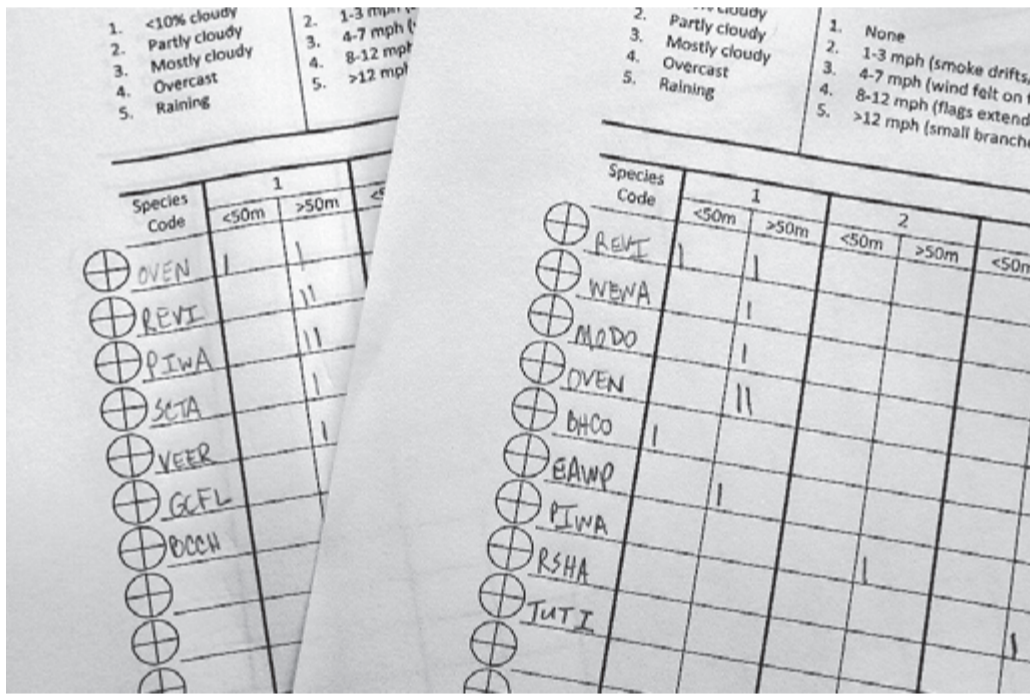 1. <10% cloudy
2. Partly cloudy
3. Mostly cloudy
4. Overcast
5. Raining
2. 1-3 mph
3. 4-7 mph (
4. 8-12 mph
5. >12 mph
Species Code
1
<50m >50m
OVEN | |
REVI ||
PIWA ||
SCTA |
VEER |
GCFL
BCCH
2. cloudy
3. Partly cloudy
4. Mostly cloudy
5. Overcast
Raining
1. None
2. 1-3 mph (smoke drifts,
3. 4-7 mph (wind felt on f
4. 8-12 mph (flags extend
5. >12 mph (small branche
Species Code
1 2
<50m >50m <50m >50m <50m
REVI | |
WEWA |
MODO |
OVEN ||
BHCO |
EAWP |
PIWA
RSHA |
TUTI |